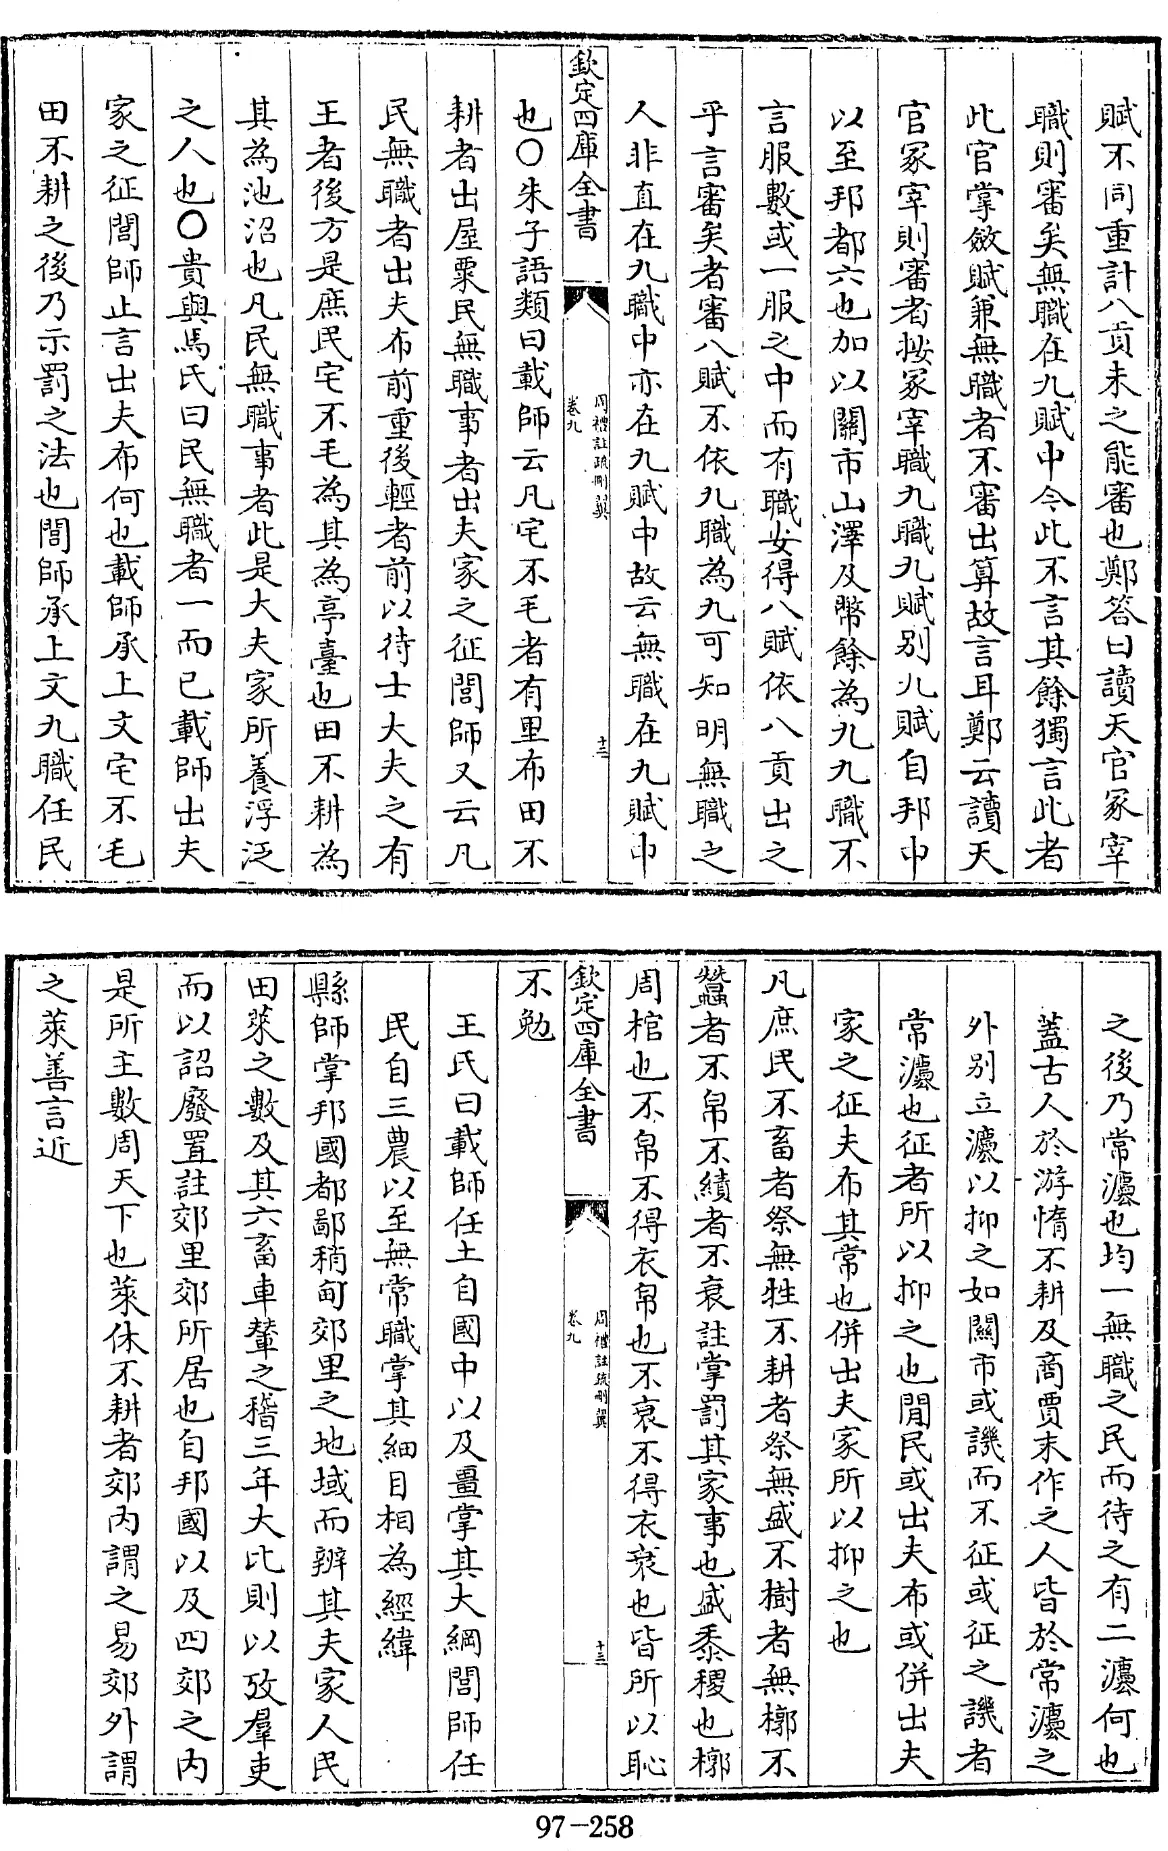 賦不同重計八貢未之能審也鄭答曰讀天官冢宰
職則審矣無職在九賦中今此不言其餘獨言此者
此官掌斂賦兼無職者不審出算故言耳鄭云讀天
官冢宰則審者按冢宰職九職九賦別九賦自邦中
以至邦都六也加以關市山澤及幣餘為九九職不
言服數或一服之中而有職安得八賦依八貢出之
乎言審矣者審八賦不依九職為九可知明無職之
人非直在九職中亦在九賦中故云無職在九賦中
欽定四庫全書
周禮註疏刪翼
卷九
十二
也〇朱子語類曰載師云凡宅不毛者有里布田不
耕者出屋粟民無職事者出夫家之征閭師又云凡
民無職者出夫布前重後輕者前以待士大夫之有
王者後方是庶民宅不毛為其為亭臺也田不耕為
其為池沼也凡民無職事者此是大夫家所養浮泛
之人也〇貴與馬氏曰民無職者一而已載師出夫
家之征閭師止言出夫布何也載師承上文宅不毛
田不耕之後乃示罰之法也閭師承上文九職任民
之後乃常灋也均一無職之民而待之有二灋何也
蓋古人於游惰不耕及商賈末作之人皆於常灋之
外別立灋以抑之如關市或譏而不征或征之譏者
常灋也征者所以抑之也閒民或出夫布或併出夫
家之征夫布其常也併出夫家所以抑之也
凡庶民不畜者祭無牲不耕者祭無盛不樹者無椁不
蠶者不帛不績者不衰註掌罰其家事也盛黍稷也椁
周棺也不帛不得衣帛也不衰不得衣衰也皆所以恥
欽定四庫全書
周禮註疏刪翼
卷九
十三
不勉
王氏曰載師任土自國中以及畺掌其大綱閭師任
民自三農以至無常職掌其細目相為經緯
縣師掌邦國都鄙稍甸郊里之地域而辨其夫家人民
田萊之數及其六畜車輦之稽三年大比則以攷羣吏
而以詔廢置註郊里郊所居也自邦國以及四郊之內
是所主數周天下也萊休不耕者郊內謂之易郊外謂
之萊善言近
97-258